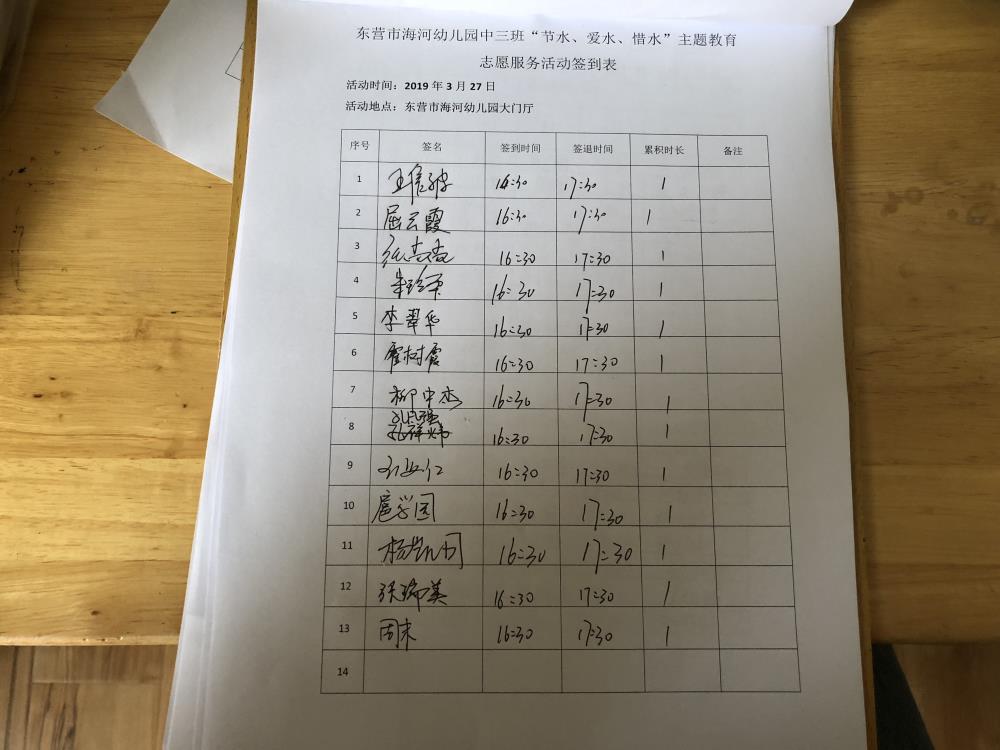 东营市海河幼儿园中三班“节水、爱水、惜水”主题教育
志愿服务活动签到表
活动时间：2019 年 3 月 27 日
活动地点：东营市海河幼儿园大门厅
序号 签名 签到时间 签退时间 累积时长 备注
1 16:30 17:30 1
2 屈云霞 16:30 17:30 1
3 16:30 17:30 1
4 16:30 17:30 1
5 李翠华 16:30 17:30 1
6 霍树震 16:30 17:30 1
7 柳中杰 16:30 17:30 1
8 16:30 17:30 1
9 16:30 17:30 1
10 扈学国 16:30 17:30 1
11 16:30 17:30 1
12 张瑞美 16:30 17:30 1
13 周末 16:30 17:30 1
14